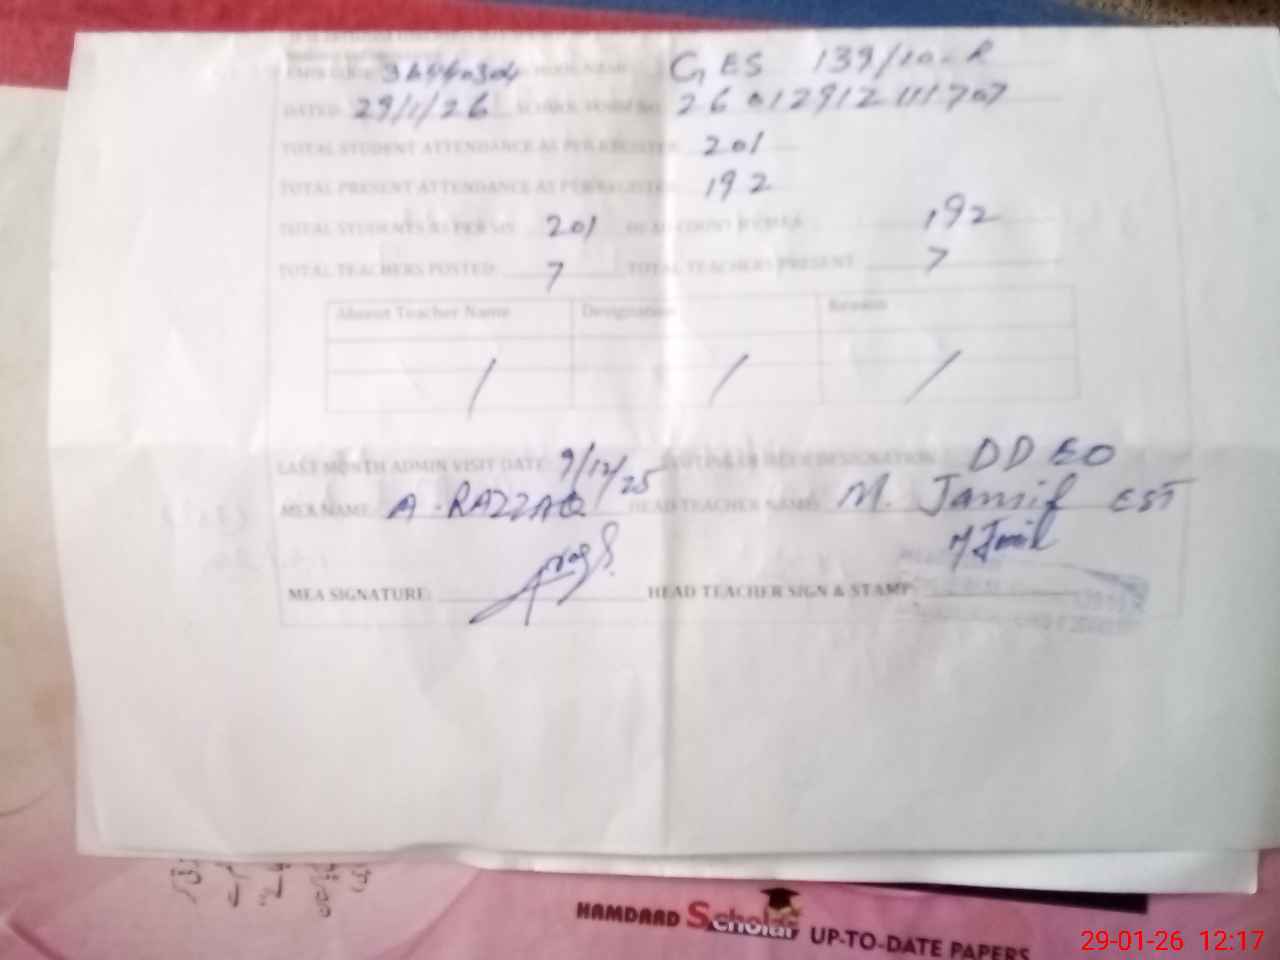 EMIS CODE: SCHOOL NAME GES 139/10-R
DATED: 29/1/26 SCHOOL 26012912111707
TOTAL STUDENT ATTENDANCE AS PER REGISTER 201
TOTAL PRESENT ATTENDANCE AS PER REGISTER 192
TOTAL STUDENTS AS PER SIS 201 HEAD COUNT BY MEA 192
TOTAL TEACHERS POSTED: 7 TOTAL TEACHERS PRESENT 7
Absent Teacher Name Designation Reason
/ / /
LAST MONTH ADMIN VISIT DATE: 9/12/25 DESIGNATION DDEO
MEA NAME: A.RAZZAQ HEAD TEACHER NAME: M. Jamil EST
M Jamil
MEA SIGNATURE: HEAD TEACHER SIGN & STAMP:
HAMDARD Scholar UP-TO-DATE PAPERS
29-01-26 12:17